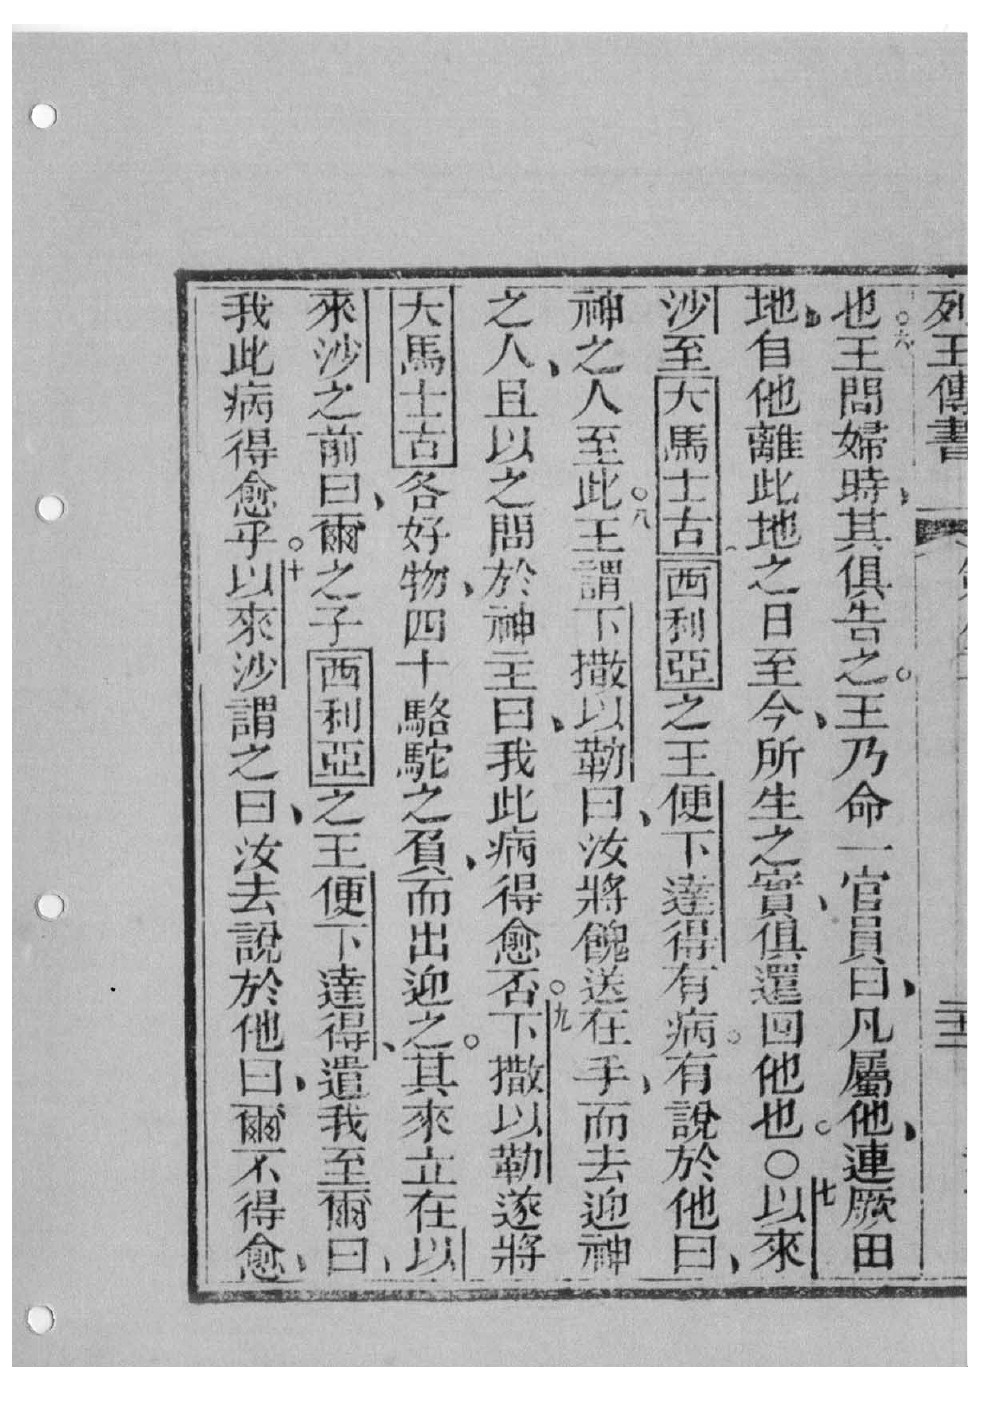 列王傳書
也。六王問婦時、其俱告之。王乃命一官員曰、凡屬他、連厥田
地、自他離此地之日至今、所生之實、俱還回他也。○七以來
沙至大馬士古、西利亞之王便下達得有病。有說於他曰、
神之人至此。八王謂下撒以勒曰、汝將餽送在手、而去迎神
之人、且以之問於神主曰、我此病得愈否。九下撒以勒遂將
大馬士古各好物、四十駱駝之負、而出迎之。其來立在以
來沙之前曰、爾之子西利亞之王便下達得、遣我至爾曰、
我此病得愈乎。十以來沙謂之曰、汝去說於他曰、爾不得愈、